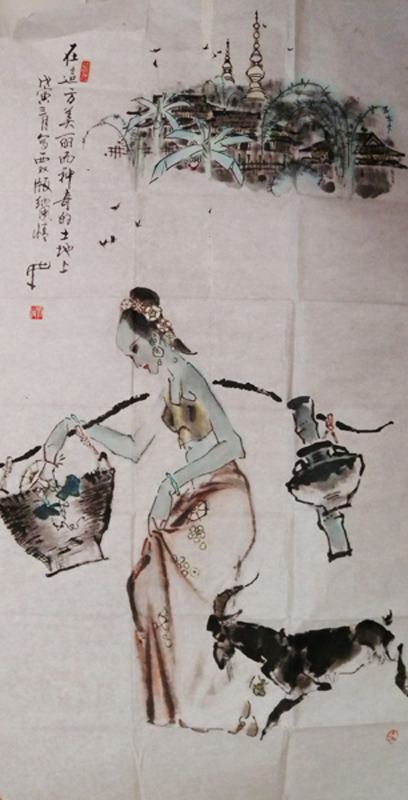 在這方美丽而神奇的土地上
戊寅三月写西双版纳风情